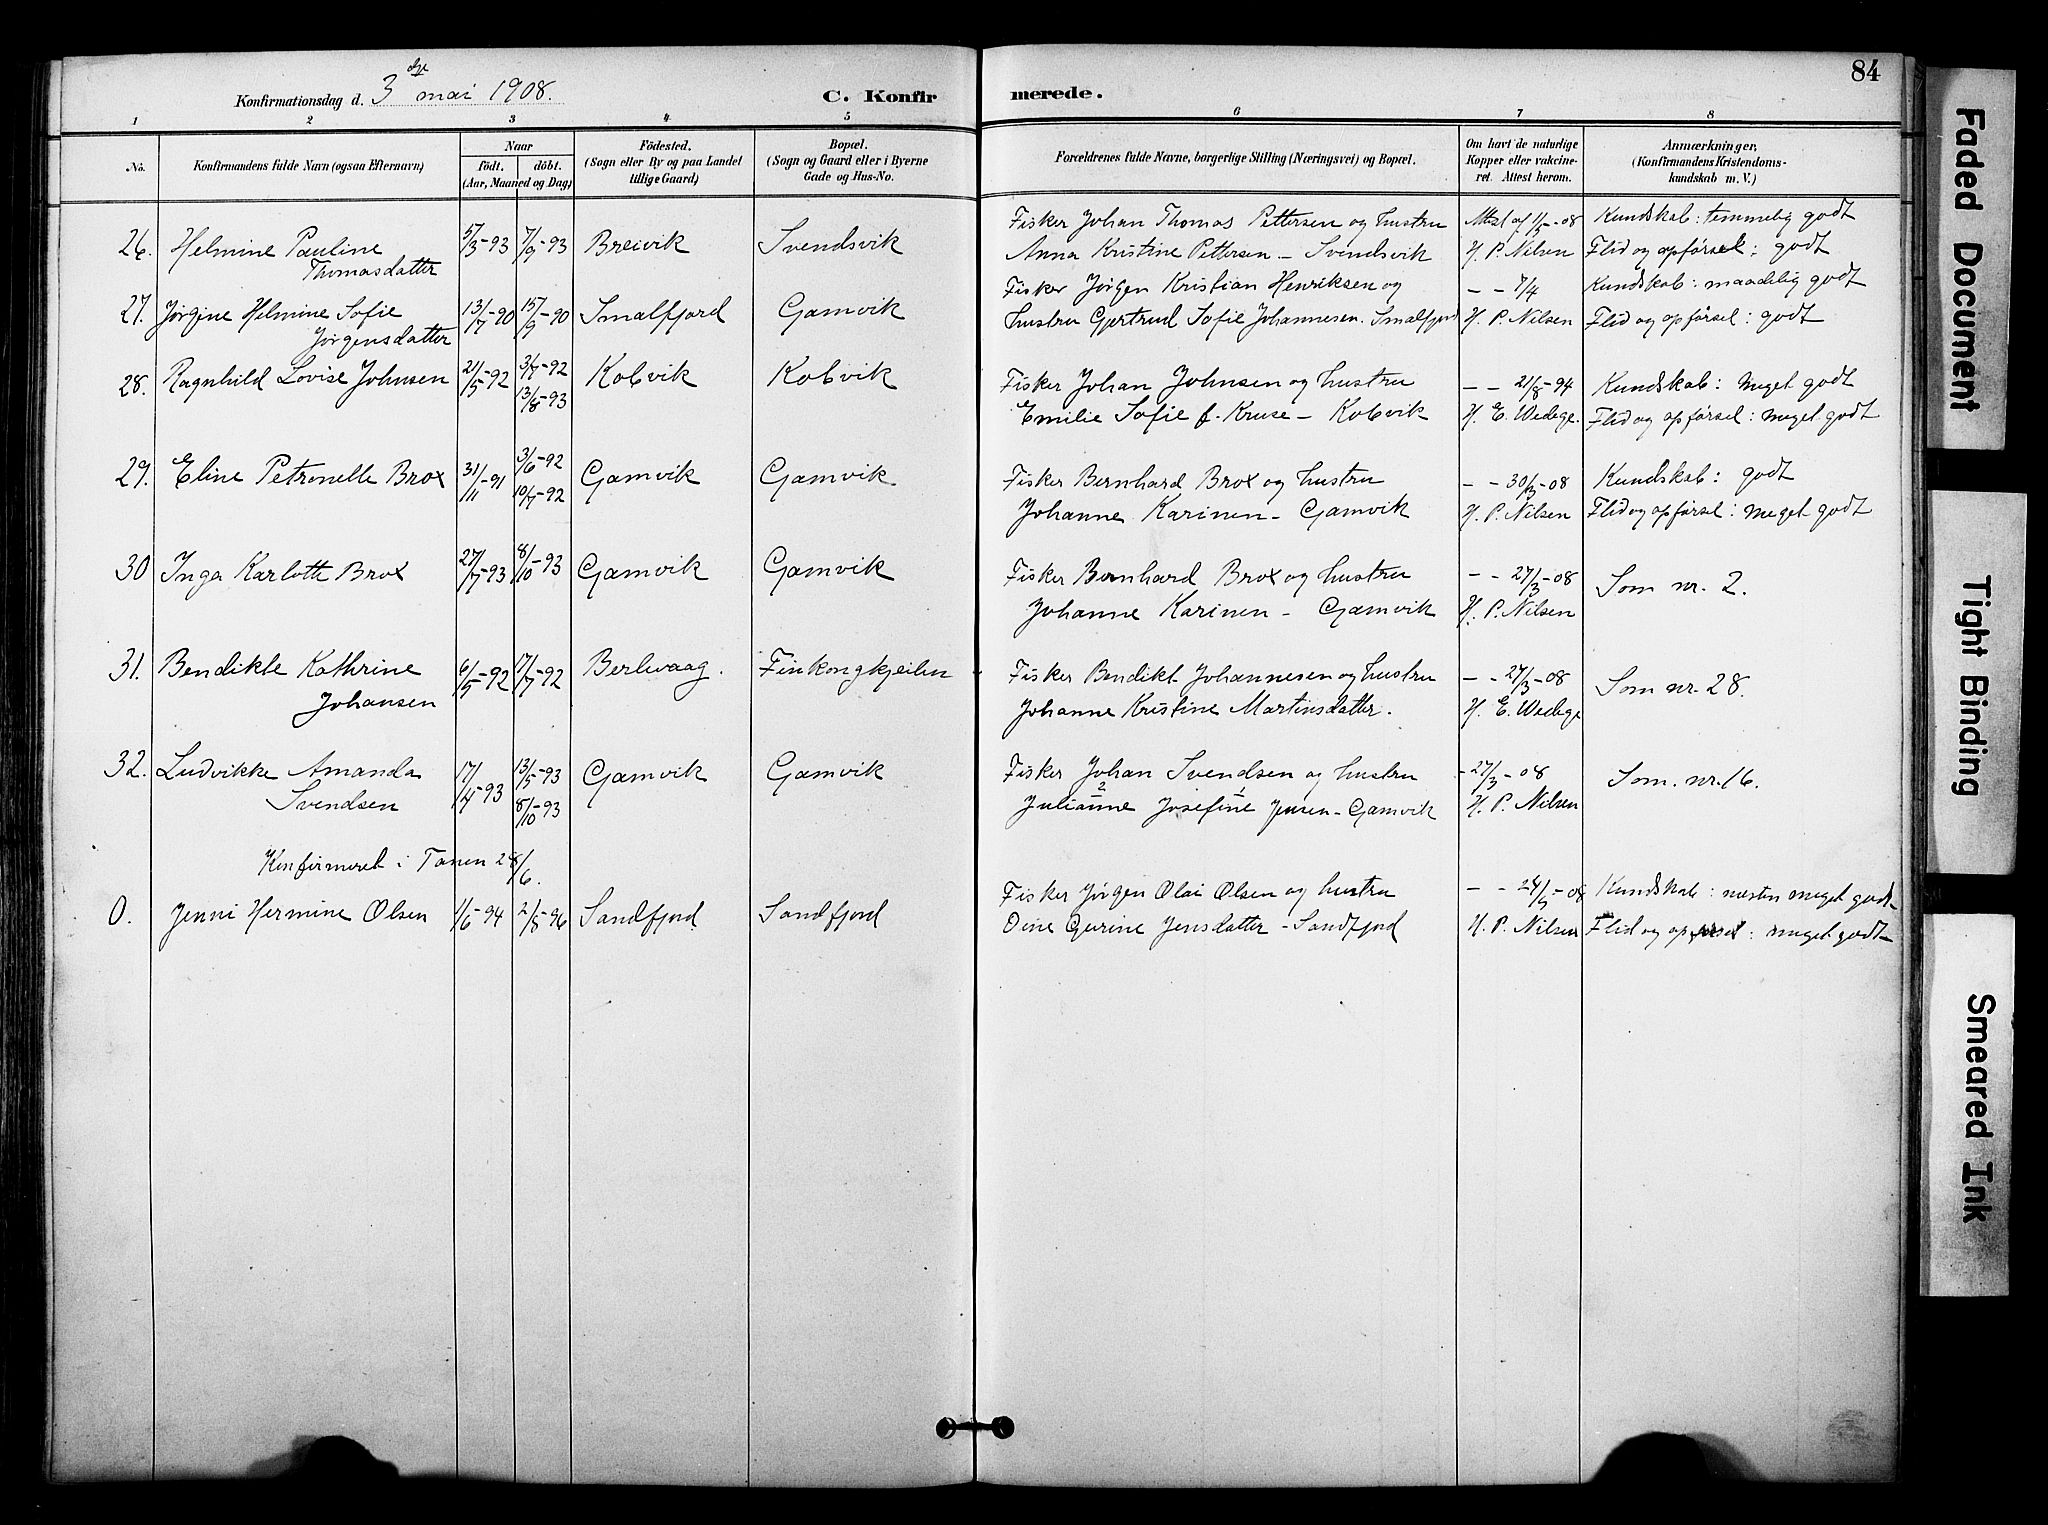 84
Konfirmationsdag d. 3die mai 1908. C. Konfirmerede.
1 2 3 4 5 6 7 8
No. Konfirmandens fulde Navn (ogsaa Efternavn) Naar födt. döbt. (Aar, Maaned og Dag) Födested. (Sogn eller By og paa Landet tillige Gaard) Bopæl. (Sogn og Gaard eller i Byerne Gade og Hus-No. Forældrenes fulde Navne, borgerlige Stilling (Næringsvei) og Bopæl. Om havt de naturlige Kopper eller vakcineret. Attest herom. Anmærkninger, (Konfirmandens Kristendomskundskab m. V.)
26. Helmine Pauline 5/3-93 7/9-93 Breivik Svendsvik Fisker Johan Thomas Pettersen og hustru Attest af 1/5-08 Kundskab: temmelig godt
Thomasdatter Anna Kristine Pettersen - Svendsvik H. P. Nilsen Flid og opførsel: godt
27. Jørgine Helmine Sofie 13/7-90 15/9-90 Smalfjord Gamvik Fisker Jørgen Kristian Henriksen og - - 7/4 Kundskab: maadelig godt
Jørgensdatter hustru Gjertrud Sofie Johannesen. Smalfjord H. P. Nilsen Flid og opførsel: godt
28. Ragnhild Lovise Johnsen 21/5-92 3/7-92 Kobvik Kobvik Fisker Johan Johnsen og hustru - - 21/8-94 Kundskab: meget godt
13/8-93 Emilie Sofie f. Kruse - Kobvik H. E. Wedege. Flid og opførsel: meget godt
29. Eline Petronelle Brox 31/11-91 3/6-92 Gamvik Gamvik Fisker Bernhard Brox og hustru - - 30/3-08 Kundskab: godt
10/7-92 Johanne Karinen - Gamvik H. P. Nilsen Flid og opførsel: meget godt
30 Inga Karlotte Brox 27/7-93 8/10-93 Gamvik Gamvik Fisker Bernhard Brox og hustru - - 27/3-08 Som nr. 2.
Johanne Karinen - Gamvik H. P. Nilsen
31. Bendikte Kathrine 6/5-92 17/7-92 Berlevaag. Finkongkjeilen Fisker Bendikt Johannesen og hustru - - 27/3-08 Som nr. 28.
Johansen Johanne Kristine Martinsdatter. H. E. Wedege
32. Ludvikke Amanda 17/4-93 13/5-93 Gamvik Gamvik Fisker Johan Svendsen og hustru - 27/3-08 Som. nr. 16.
Svendsen 8/10-93 Julianne Josefine Jensen - Gamvik H. P. Nilsen
Konfirmeret i Tanen 28/6.
0. Jenni Hermine Olsen 1/6-94 2/8-96 Sandfjord Sandfjord Fisker Jørgen Olai Olsen og hustru - - 24/5-08 Kundskab: næsten meget godt
Dine Gurine Jensdatter - Sandfjord H. P. Nilsen Flid og opførsel: meget godt
Faded Document
Tight Binding
Smeared Ink